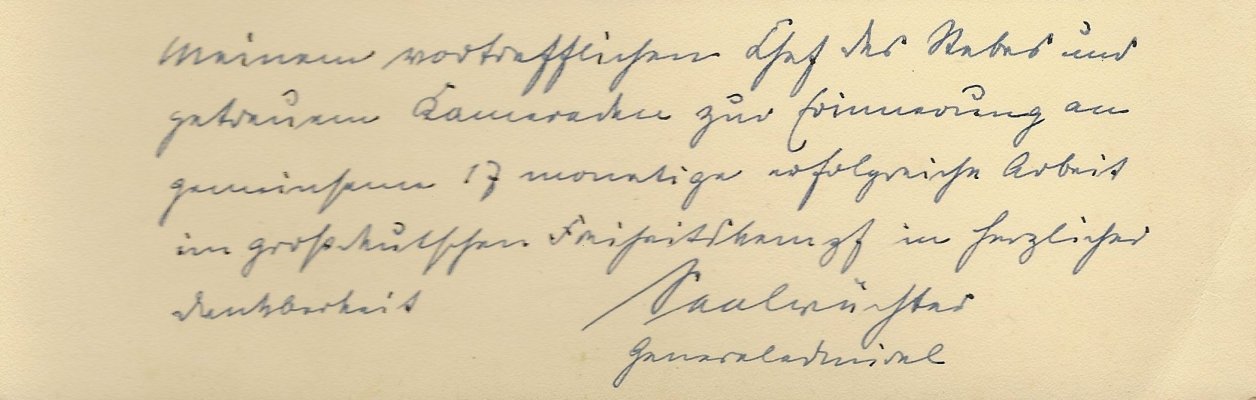 Meinem vortrefflichen Chef des Stabes und
getreuem Kameraden zur Erinnerung an
gemeinsame 17 monatige erfolgreiche Arbeit
im großdeutschen Freiheitskampf in herzlicher
Dankbarkeit Saalwächter
Generaladmiral